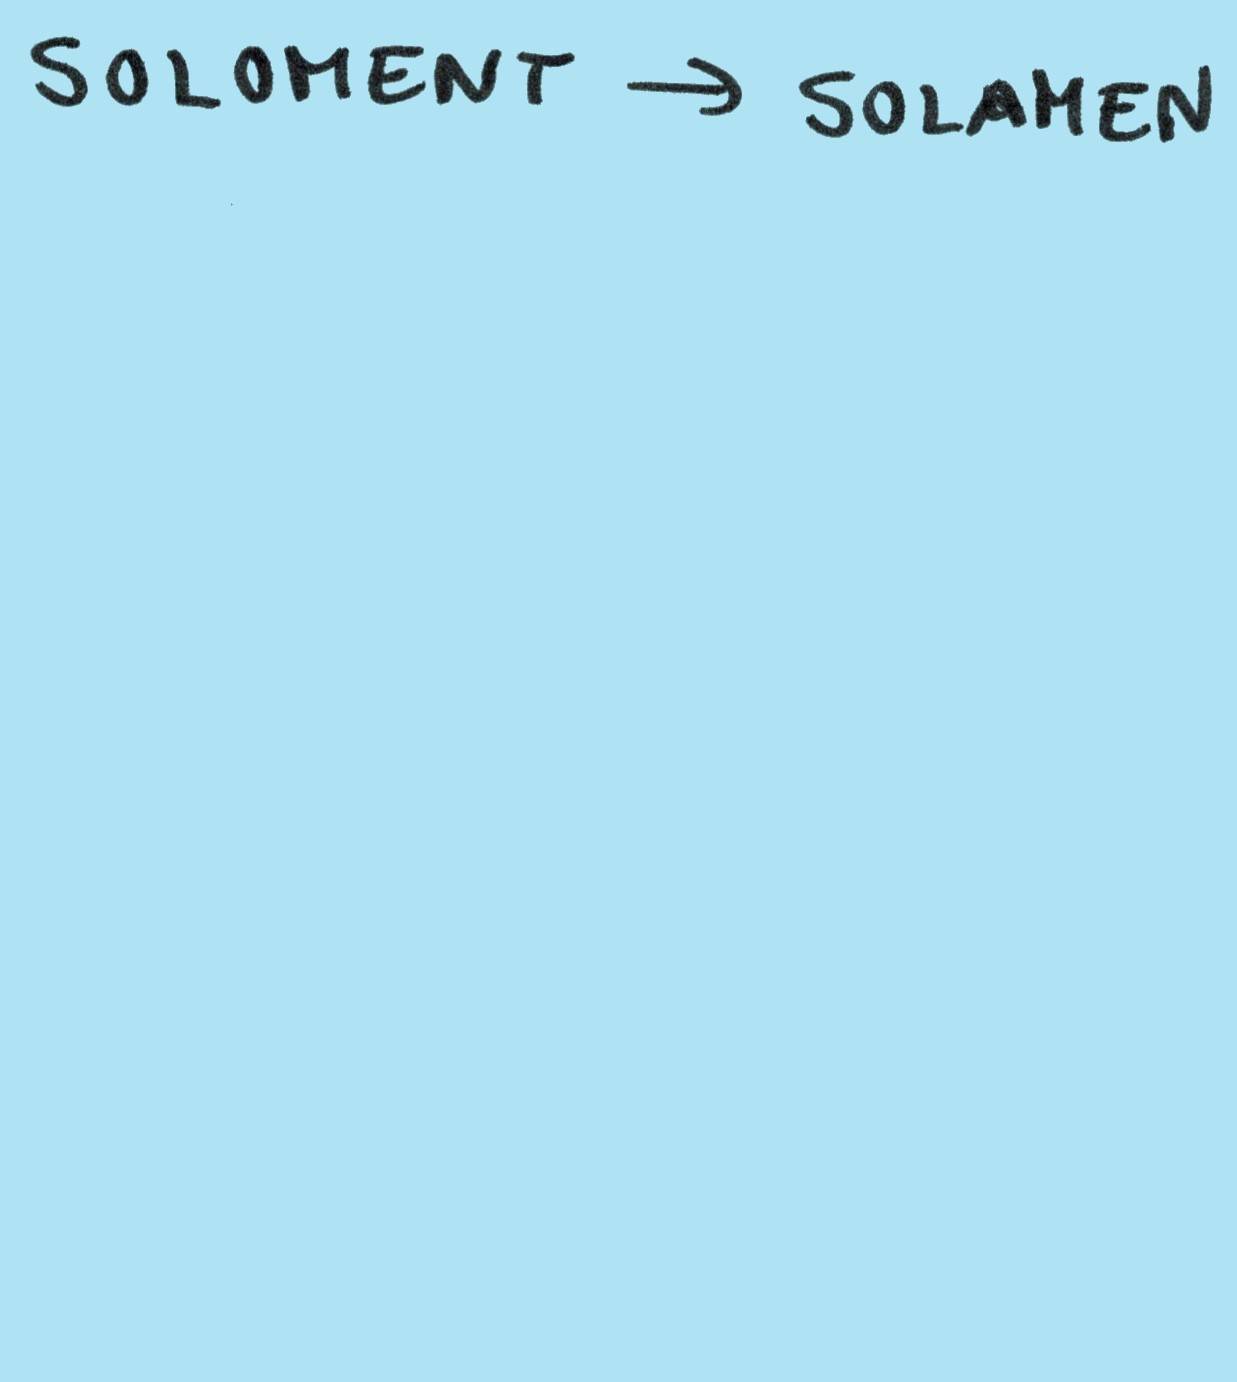 SOLOMENT → SOLAMEN